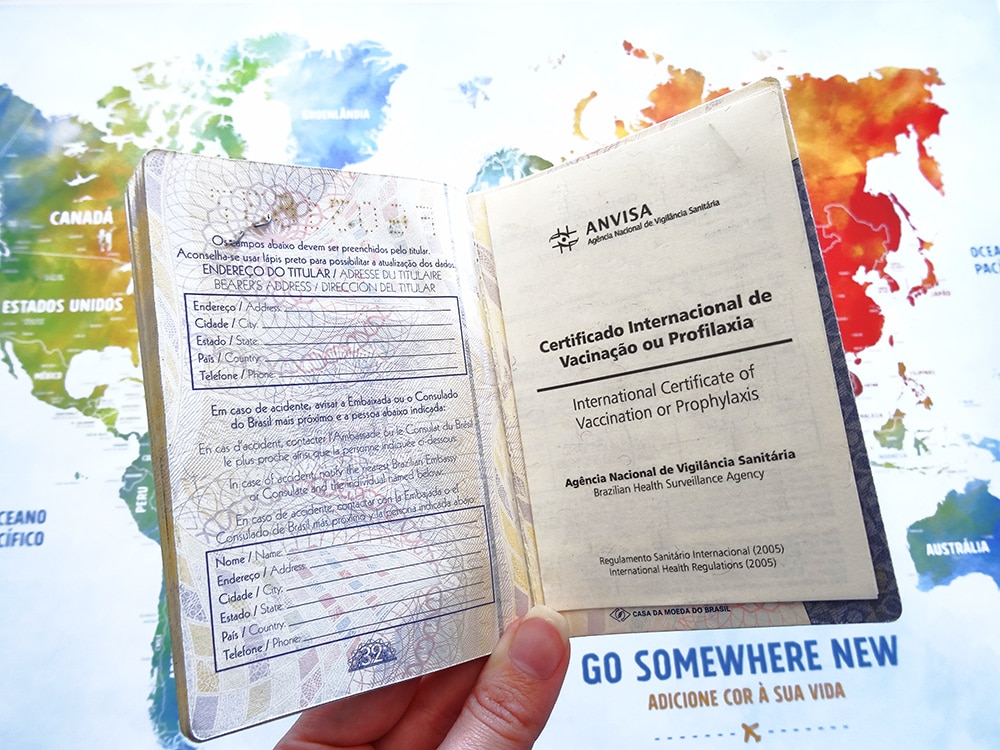 GROENLÂNDIA
CANADÁ
ESTADOS UNIDOS
MÉXICO
PERU
Os campos abaixo devem ser preenchidos pelo titular.
Aconselha-se usar lápis preto para possibilitar a atualização dos dados.
ENDEREÇO DO TITULAR / ADRESSE DU TITULAIRE
BEARER'S ADDRESS / DIRECCIÓN DEL TITULAR
Endereço / Address:
Cidade / City:
Estado / State:
País / Country:
Telefone / Phone:
Em caso de acidente, avisar a Embaixada ou o Consulado
do Brasil mais próximo e a pessoa abaixo indicada:
En cas d'accident, contacter l'Ambassade ou le Consulat du Brésil
le plus proche ainsi que la personne indiquée ci-dessous:
In case of accident, notify the nearest Brazilian Embassy
or Consulate and the individual named below:
En caso de accidente, contactar con la Embajada o el
Consulado de Brasil más próximo y la persona indicada abajo:
Nome / Name:
Endereço / Address:
Cidade / City:
Estado / State:
País / Country:
Telefone / Phone:
32
ANVISA
Agência Nacional de Vigilância Sanitária
Certificado Internacional de
Vacinação ou Profilaxia
International Certificate of
Vaccination or Prophylaxis
Agência Nacional de Vigilância Sanitária
Brazilian Health Surveillance Agency
Regulamento Sanitário Internacional (2005)
International Health Regulations (2005)
CASA DA MOEDA DO BRASIL
OCEA
PAC
JAPÃO
CEANO
CÍFICO
AUSTRÁLIA
GO SOMEWHERE NEW
ADICIONE COR À SUA VIDA